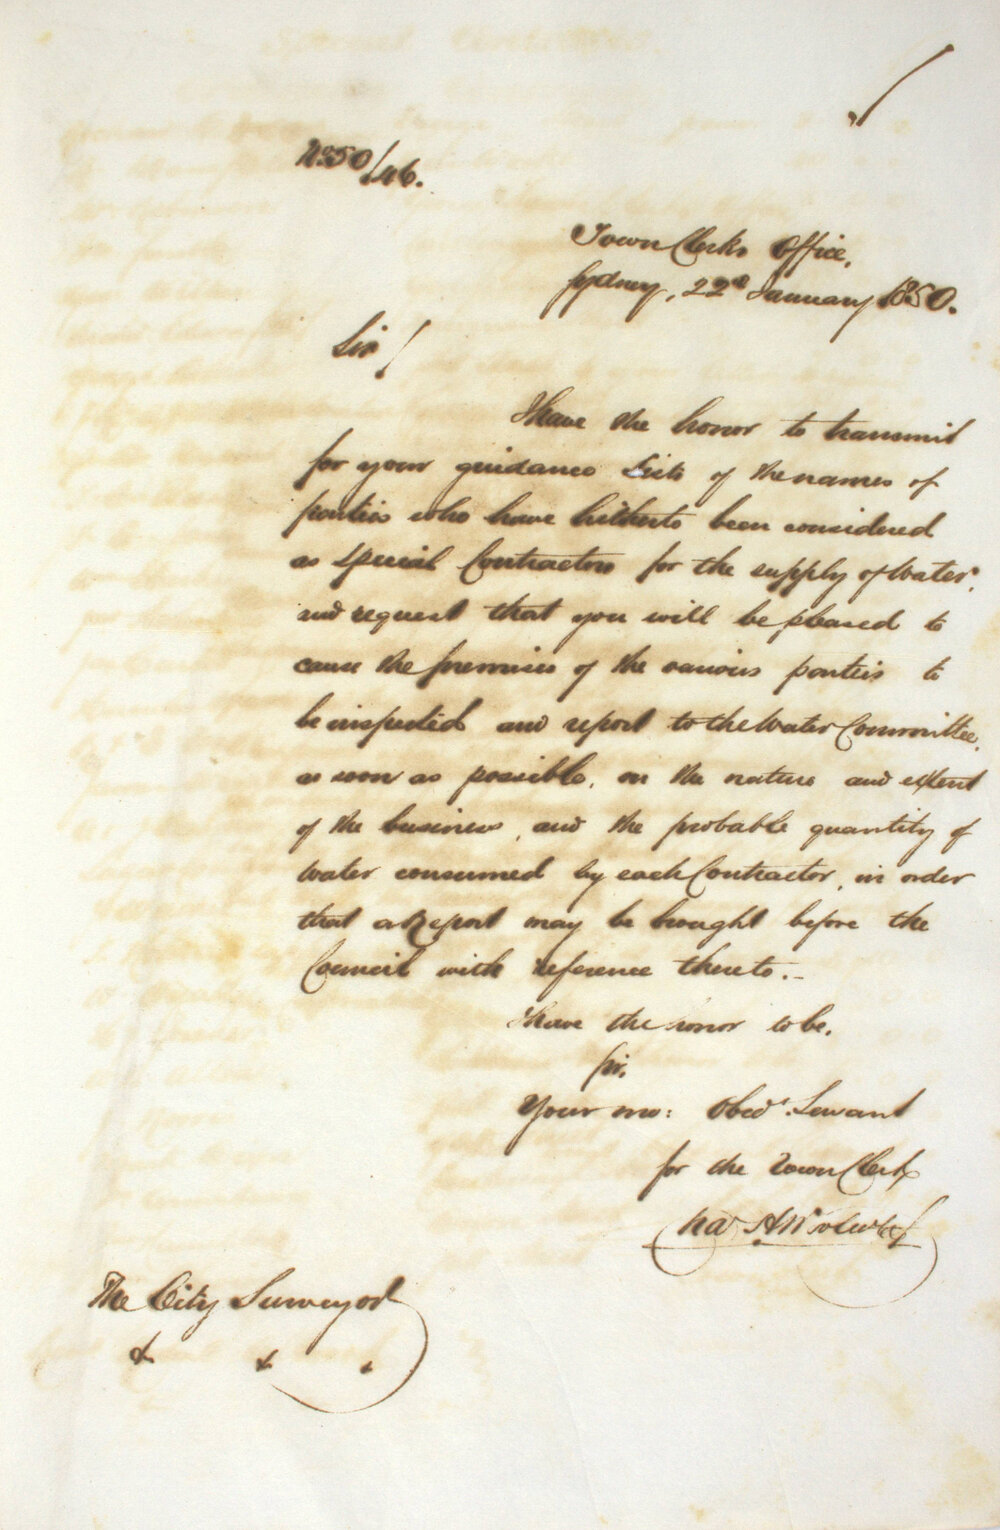 No. 50/46.
Town Clerks Office,
Sydney, 22d January 1850.
Sir!
I have the honor to transmit
for your guidance Lists of the names of
parties who have hitherto been considered
as special Contractors for the supply of Water,
and request that you will be pleased to
cause the premises of the various parties to
be inspected and report to the Water Committee,
as soon as possible, on the nature and extent
of the business, and the probable quantity of
Water consumed by each Contractor, in order
that a Report may be brought before the
Council with reference thereto.-
I have the honor to be,
Sir,
Your mo: Obedt. Servant
for the Town Clerk
Chas
The City Surveyor
&c &c &c